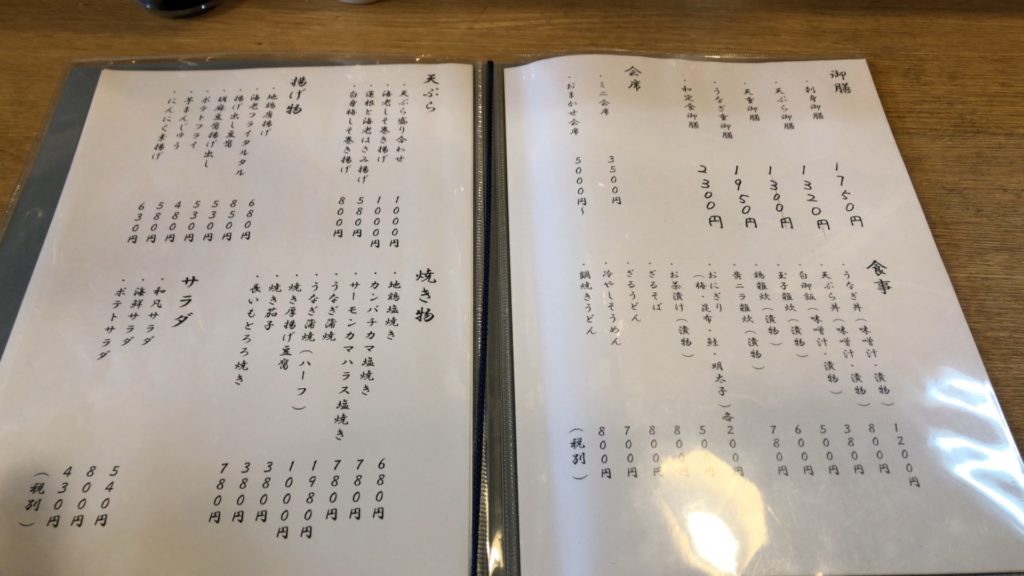 御膳
・刺身御膳 1750円
・天ぷら御膳 1320円
・天重御膳 1300円
・うなぎ重御膳 1950円
・和定食御膳 2300円
会席
・ミニ会席 3500円
・おまかせ会席 5000円~
食事
・うなぎ丼(味噌汁・漬物) 1200円
・天ぷら丼(味噌汁・漬物) 800円
・白御飯(味噌汁・漬物) 380円
・玉子雑炊(漬物) 500円
・鶏雑炊(漬物) 600円
・黄ニラ雑炊(漬物) 780円
・おにぎり
(梅・昆布・鮭・明太子)各 200円
・お茶漬け(漬物) 500円
・ざるそば 800円
・ざるうどん 800円
・冷やしそうめん 700円
・鍋焼きうどん 800円
(税別)
天ぷら
・天ぷら盛り合わせ 1000円
・海老しそ巻き揚げ 1000円
・蓮根と海老はさみ揚げ 580円
・白身梅しそ巻き揚げ 800円
揚げ物
・地鶏唐揚げ 680円
・海老フライタルタル 850円
・揚げ出し豆腐 530円
・胡麻豆腐揚げ出し 530円
・ポテトフライ 480円
・芋まんじゅう 580円
・にんにく素揚げ 630円
焼き物
・地鶏塩焼き 680円
・カンパチカマ塩焼き 780円
・サーモンカマハラス塩焼き 780円
・うなぎ蒲焼 1980円
・うなぎ蒲焼(ハーフ) 1000円
・焼き厚揚げ豆腐 380円
・焼き茄子 380円
・長いもとろろ焼き 780円
サラダ
・和凡サラダ 540円
・海鮮サラダ 800円
・ポテトサラダ 430円
(税別)